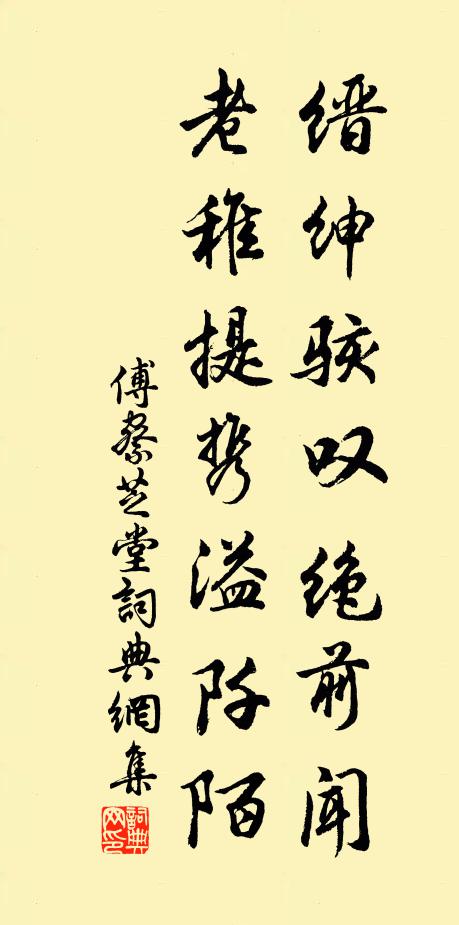 缙绅骇叹绝前闻
老稚提携溢阡陌
傅蔡芝堂詞典網集
詞典网印